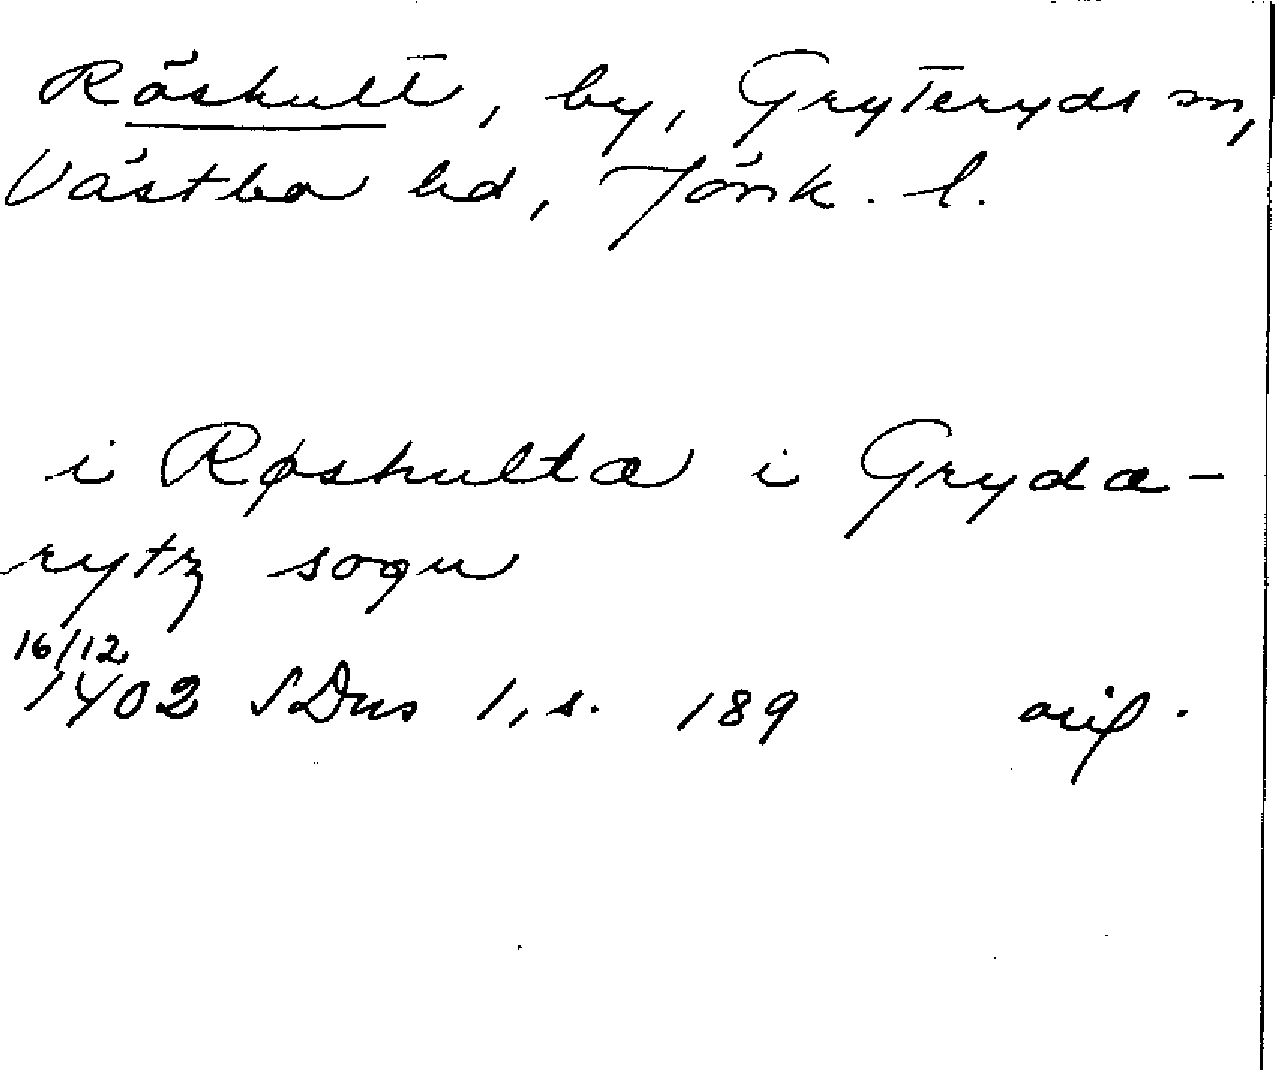 Röskult, by, Gryteryds sn,
Västbo hd, Jönk. l.
i Røskulta i Gryda-
rytz soqn
16/12
1402 SDns 1, s. 189 orig.